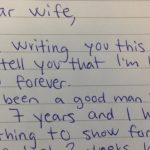 ar wife,
writing you this
tell you that I'm l
forever.
been a good man
7 years and I h
thing to show for
2 weeks